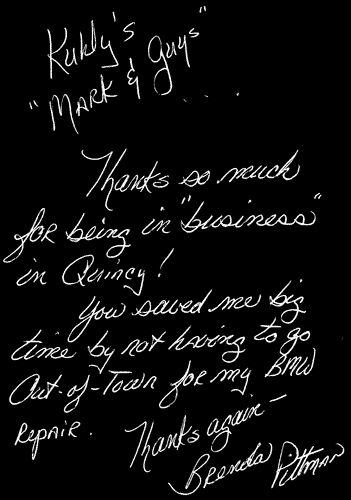 Kuhly's
"MARK & Guys"
. . . .
Thanks so much
for being in "business"
in Quincy!
You saved me big
time by not having to go
Out-of-Town for my BMW
REPAIR.
Thanks again-
Brenda Pittman